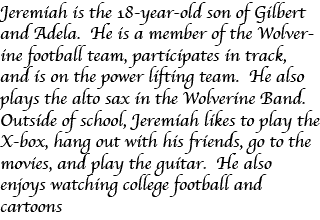 Jeremiah is the 18-year-old son of Gilbert
and Adela.  He is a member of the Wolver-
ine football team, participates in track,
and is on the power lifting team.  He also
plays the alto sax in the Wolverine Band.
Outside of school, Jeremiah likes to play the
X-box, hang out with his friends, go to the
movies, and play the guitar.  He also
enjoys watching college football and
cartoons